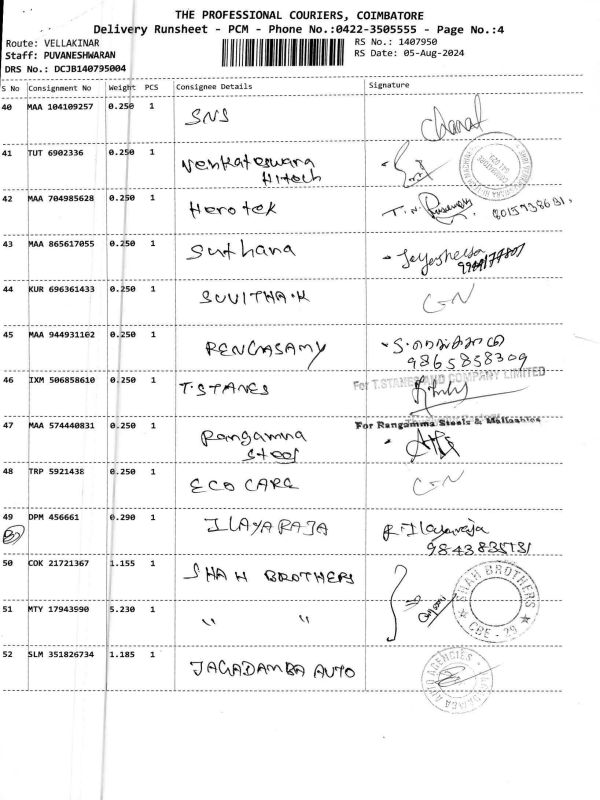 THE PROFESSIONAL COURIERS, COIMBATORE
Delivery Runsheet - PCM - Phone No.:0422-3505555 - Page No.:4
Route: VELLAKINAR
RS No.: 1407950
Staff: PUVANESHWARAN
RS Date: 05-Aug-2024
DRS No.: DCJB140795004
S No Consignment No Weight PCS Consignee Details Signature
40 MAA 104109257 0.250 1 SNS
41 TUT 6902336 0.250 1 Venkateswara
Hitech
42 MAA 704985628 0.250 1 Herotek T.N.
43 MAA 865617055 0.250 1 Suthana
44 KUR 696361433 0.250 1 SUVITHA.K
45 MAA 944931102 0.250 1 RENGASAMY
9865858309
46 IXM 506858610 0.250 1 T.STANES For T.STANES AND COMPANY LIMITED
47 MAA 574440831 0.250 1 Rangamma For Rangamma Steels & Malleables
Steel
48 TRP 5921438 0.250 1 ECO CARE
49 DPM 456661 0.290 1 ILAYARAJA R.Ilayaraja
50 COK 21721367 1.155 1 SHAH BROTHERS SHAH BROTHERS
CBE - 29
51 MTY 17943990 5.230 1 " "
52 SLM 351826734 1.185 1 JAGADAMBA AUTO JAGADAMBA AUTO AGENCIES